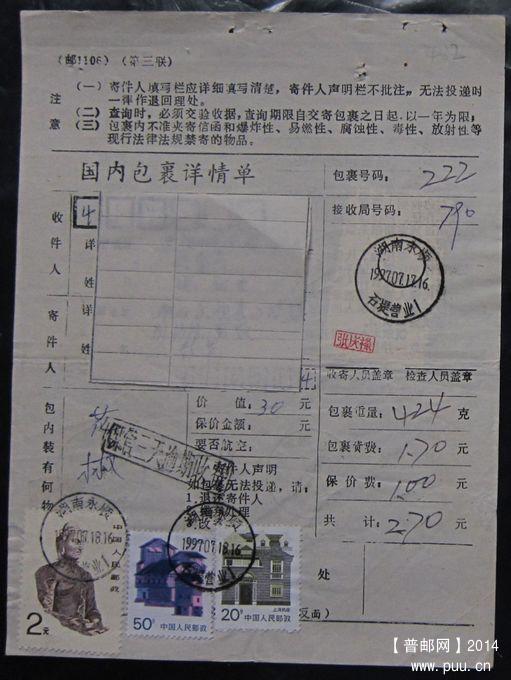 (邮1106) (第三联)
注意
(一) 寄件人填写栏应详细填写清楚,寄件人声明栏不批注,无法投递时一律作退回理处。
(二) 查询时,必须交验收据,查询期限自交寄包裹之日起,以一年为限;
(三) 包裹内不准夹寄信函和爆炸性、易燃性、腐蚀性、毒性、放射性等现行法律法规禁寄的物品。
国内包裹详情单
包裹号码: 222
接收局号码: 790
收件人
详
姓
寄件人
详
姓
湖南永顺
1997.07.18.16
石堤营业1
收寄人员盖章 检查人员盖章
包内装有何物
价值: 30 元
保价金额: 元
要否航空:
寄件人声明
如包裹无法投递,请:
1.退还寄件人
包裹重量: 424 克
包裹资费: 1.70 元
保价费: 1.00 元
共计: 2.70 元
湖南永顺
1997.07.18.16
营业1
1997.07.18.16
石堤营业1
中国人民邮政
2元
50分
中国人民邮政
20分
上海民居
中国人民邮政
处
反面)
【普邮网】2014
www.puu.cn